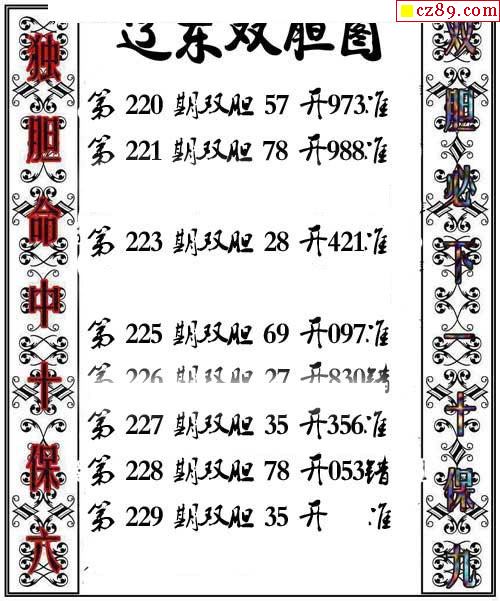 cz89.com
辽东双胆图
独胆命中十保六
第 220 期双胆 57 开973准
第 221 期双胆 78 开988准
第 223 期双胆 28 开421准
第 225 期双胆 69 开097准
第 226 期双胆 27 开830错
第 227 期双胆 35 开356准
第 228 期双胆 78 开053错
第 229 期双胆 35 开 准
双胆必下一十保九